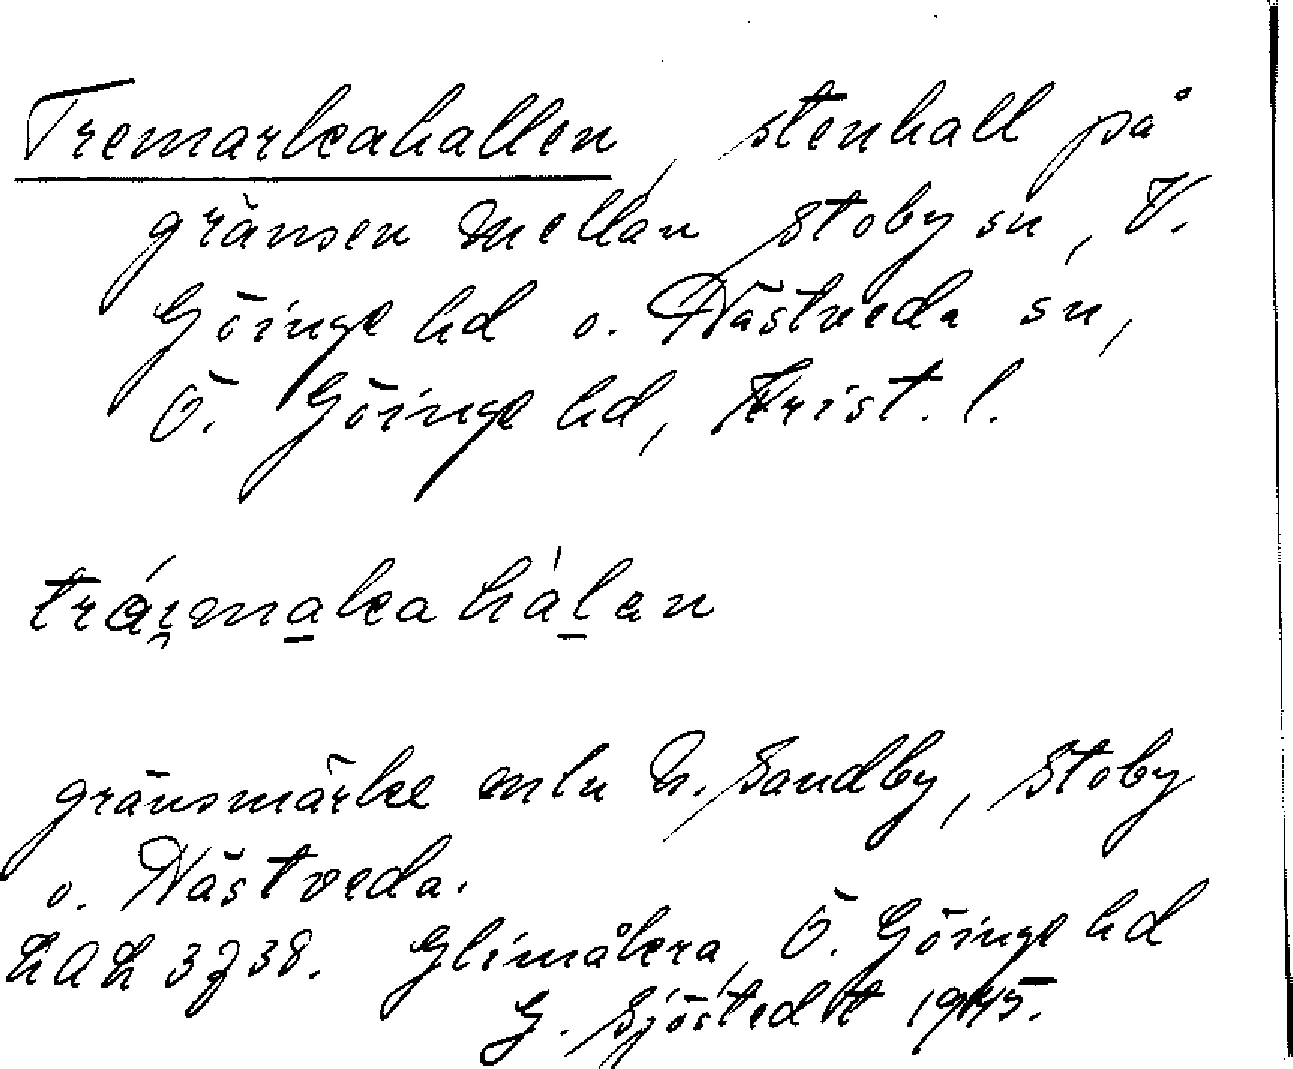 Tremarkahallen, stenhall på
gränsen mellan Stoby sn, V.
Göinge hd o. Nästveda sn,
Ö. Göinge hd, Krist. l.
gränsmärke mln N. Sandby, Stoby
o. Nästveda.
LAL 3738. Glimåkra, Ö. Göinge hd
G. Sjöstedt 1945.